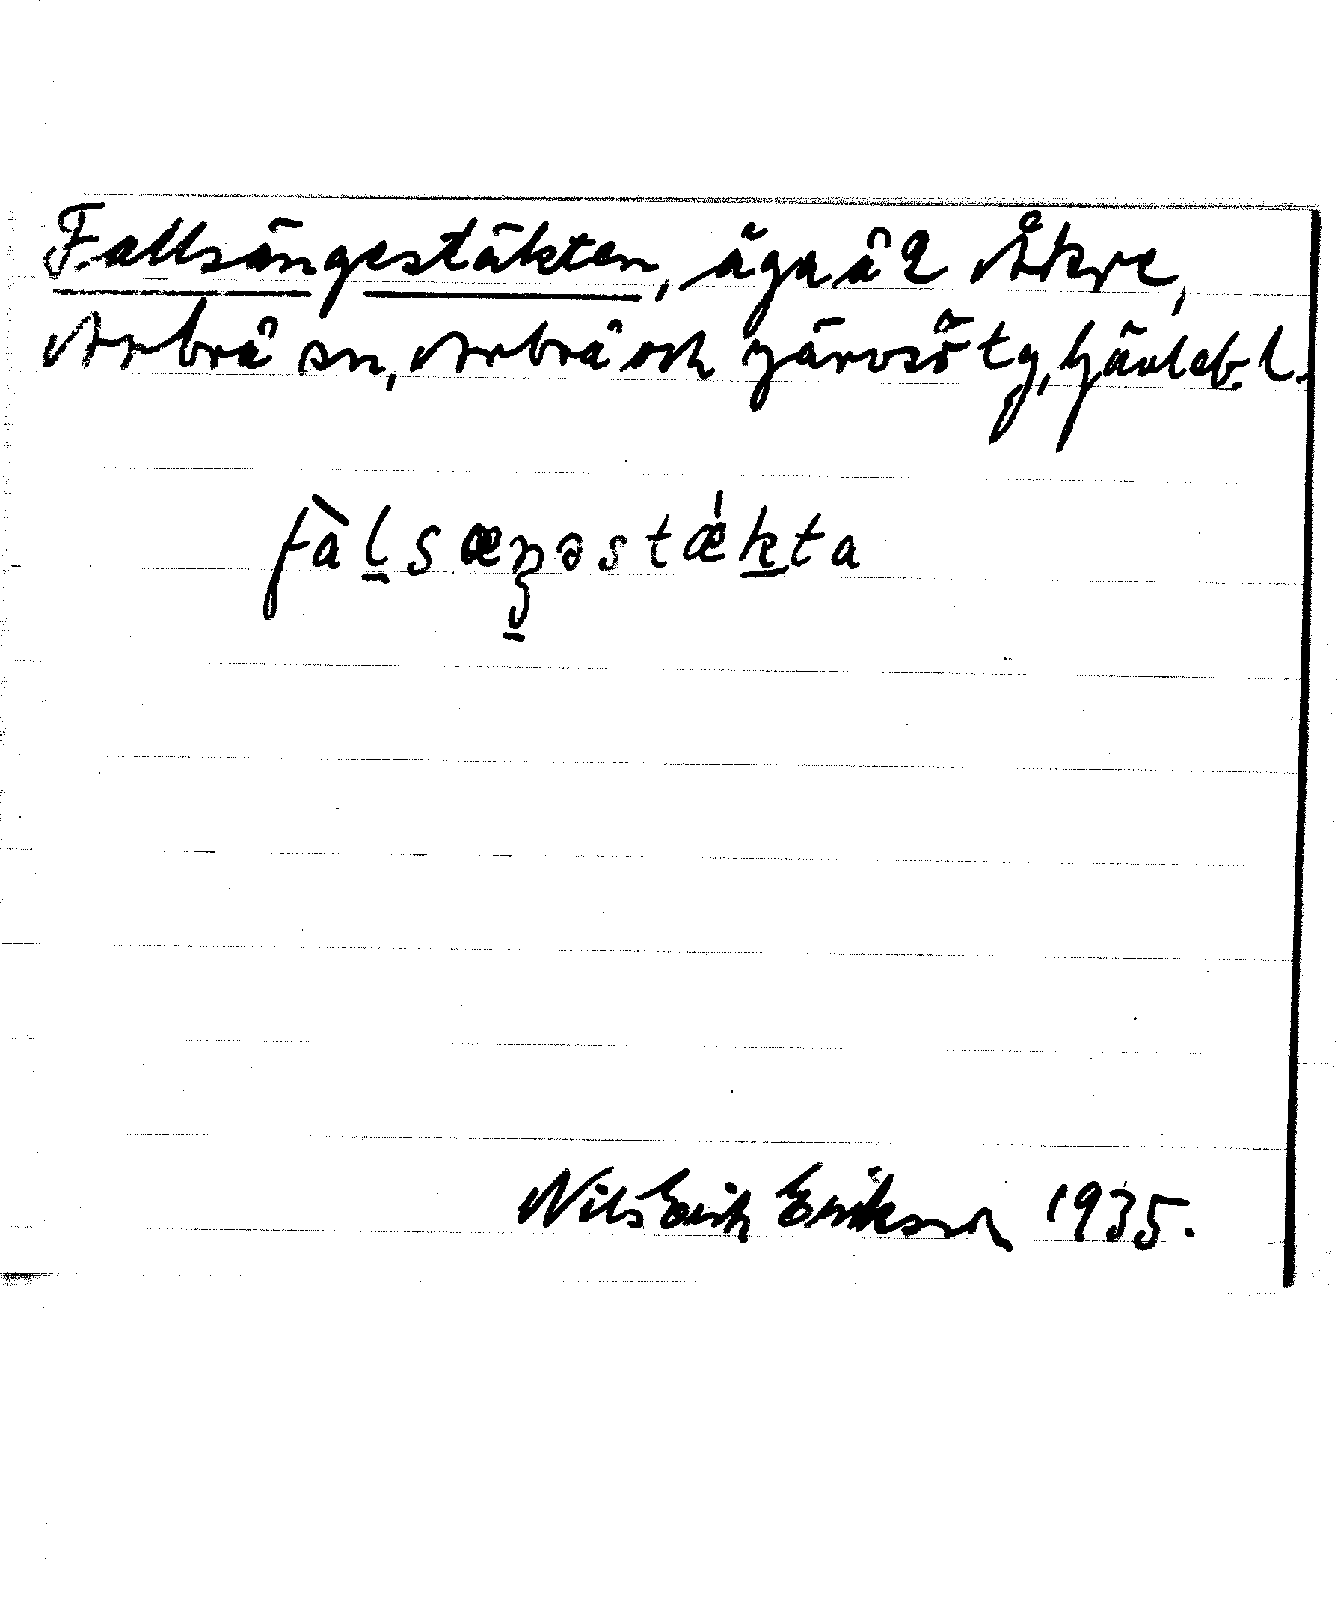 Fallsängestäkten, äga å 2 Åkre,
Arbrå sn, Arbrå och Järvsö tg, Gävleb. l.
fàl̠sæŋ̠əstǽk̠ta
Nils Erik Eriksson 1935.